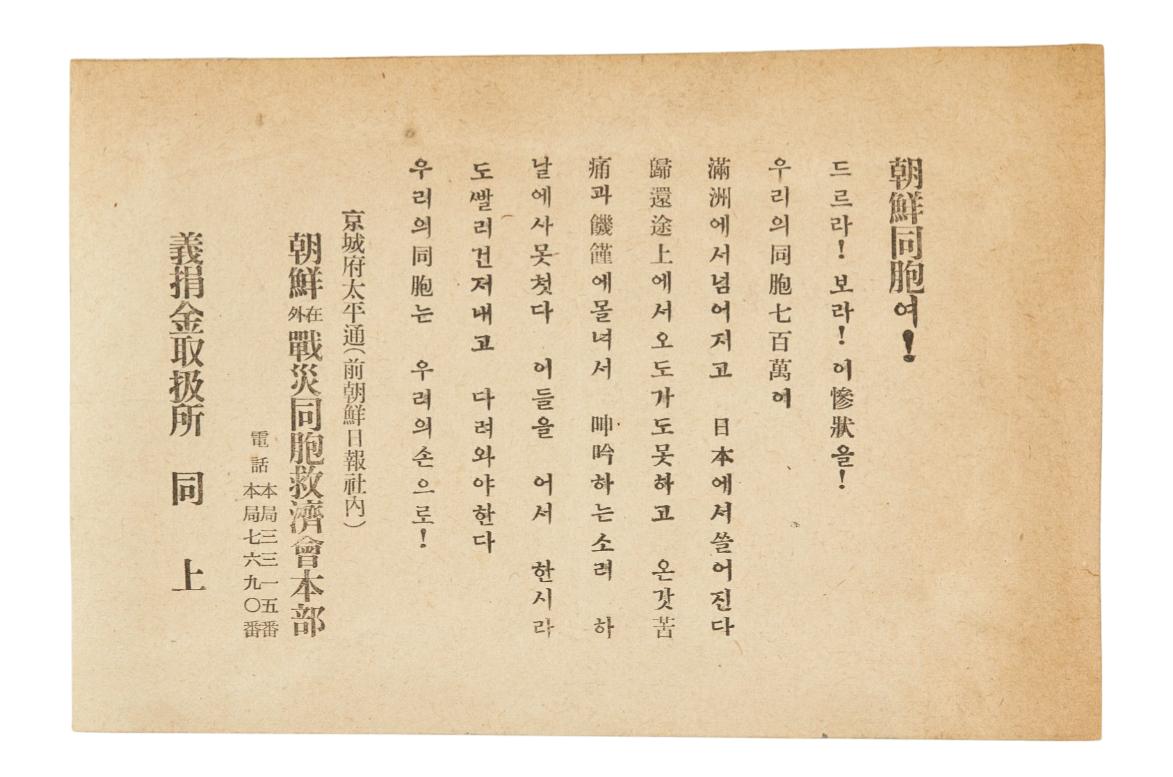 朝鮮同胞여!
드르라! 보라! 이慘狀을!
우리의同胞七百萬여
滿洲에서넘어지고 日本에서쓸어진다
歸還途上에서오도가도못하고 온갓苦
痛과饑饉에몰녀서 呻吟하는소리 하
날에사못첫다 이들을 어서 한시라
도빨리건저내고 다려와야한다
우리의同胞는 우리의손으로!
京城府太平通(前朝鮮日報社內)
朝鮮在外戰災同胞救濟會本部
電話 本局三三一五番
本局七六九〇番
義捐金取扱所 同 上